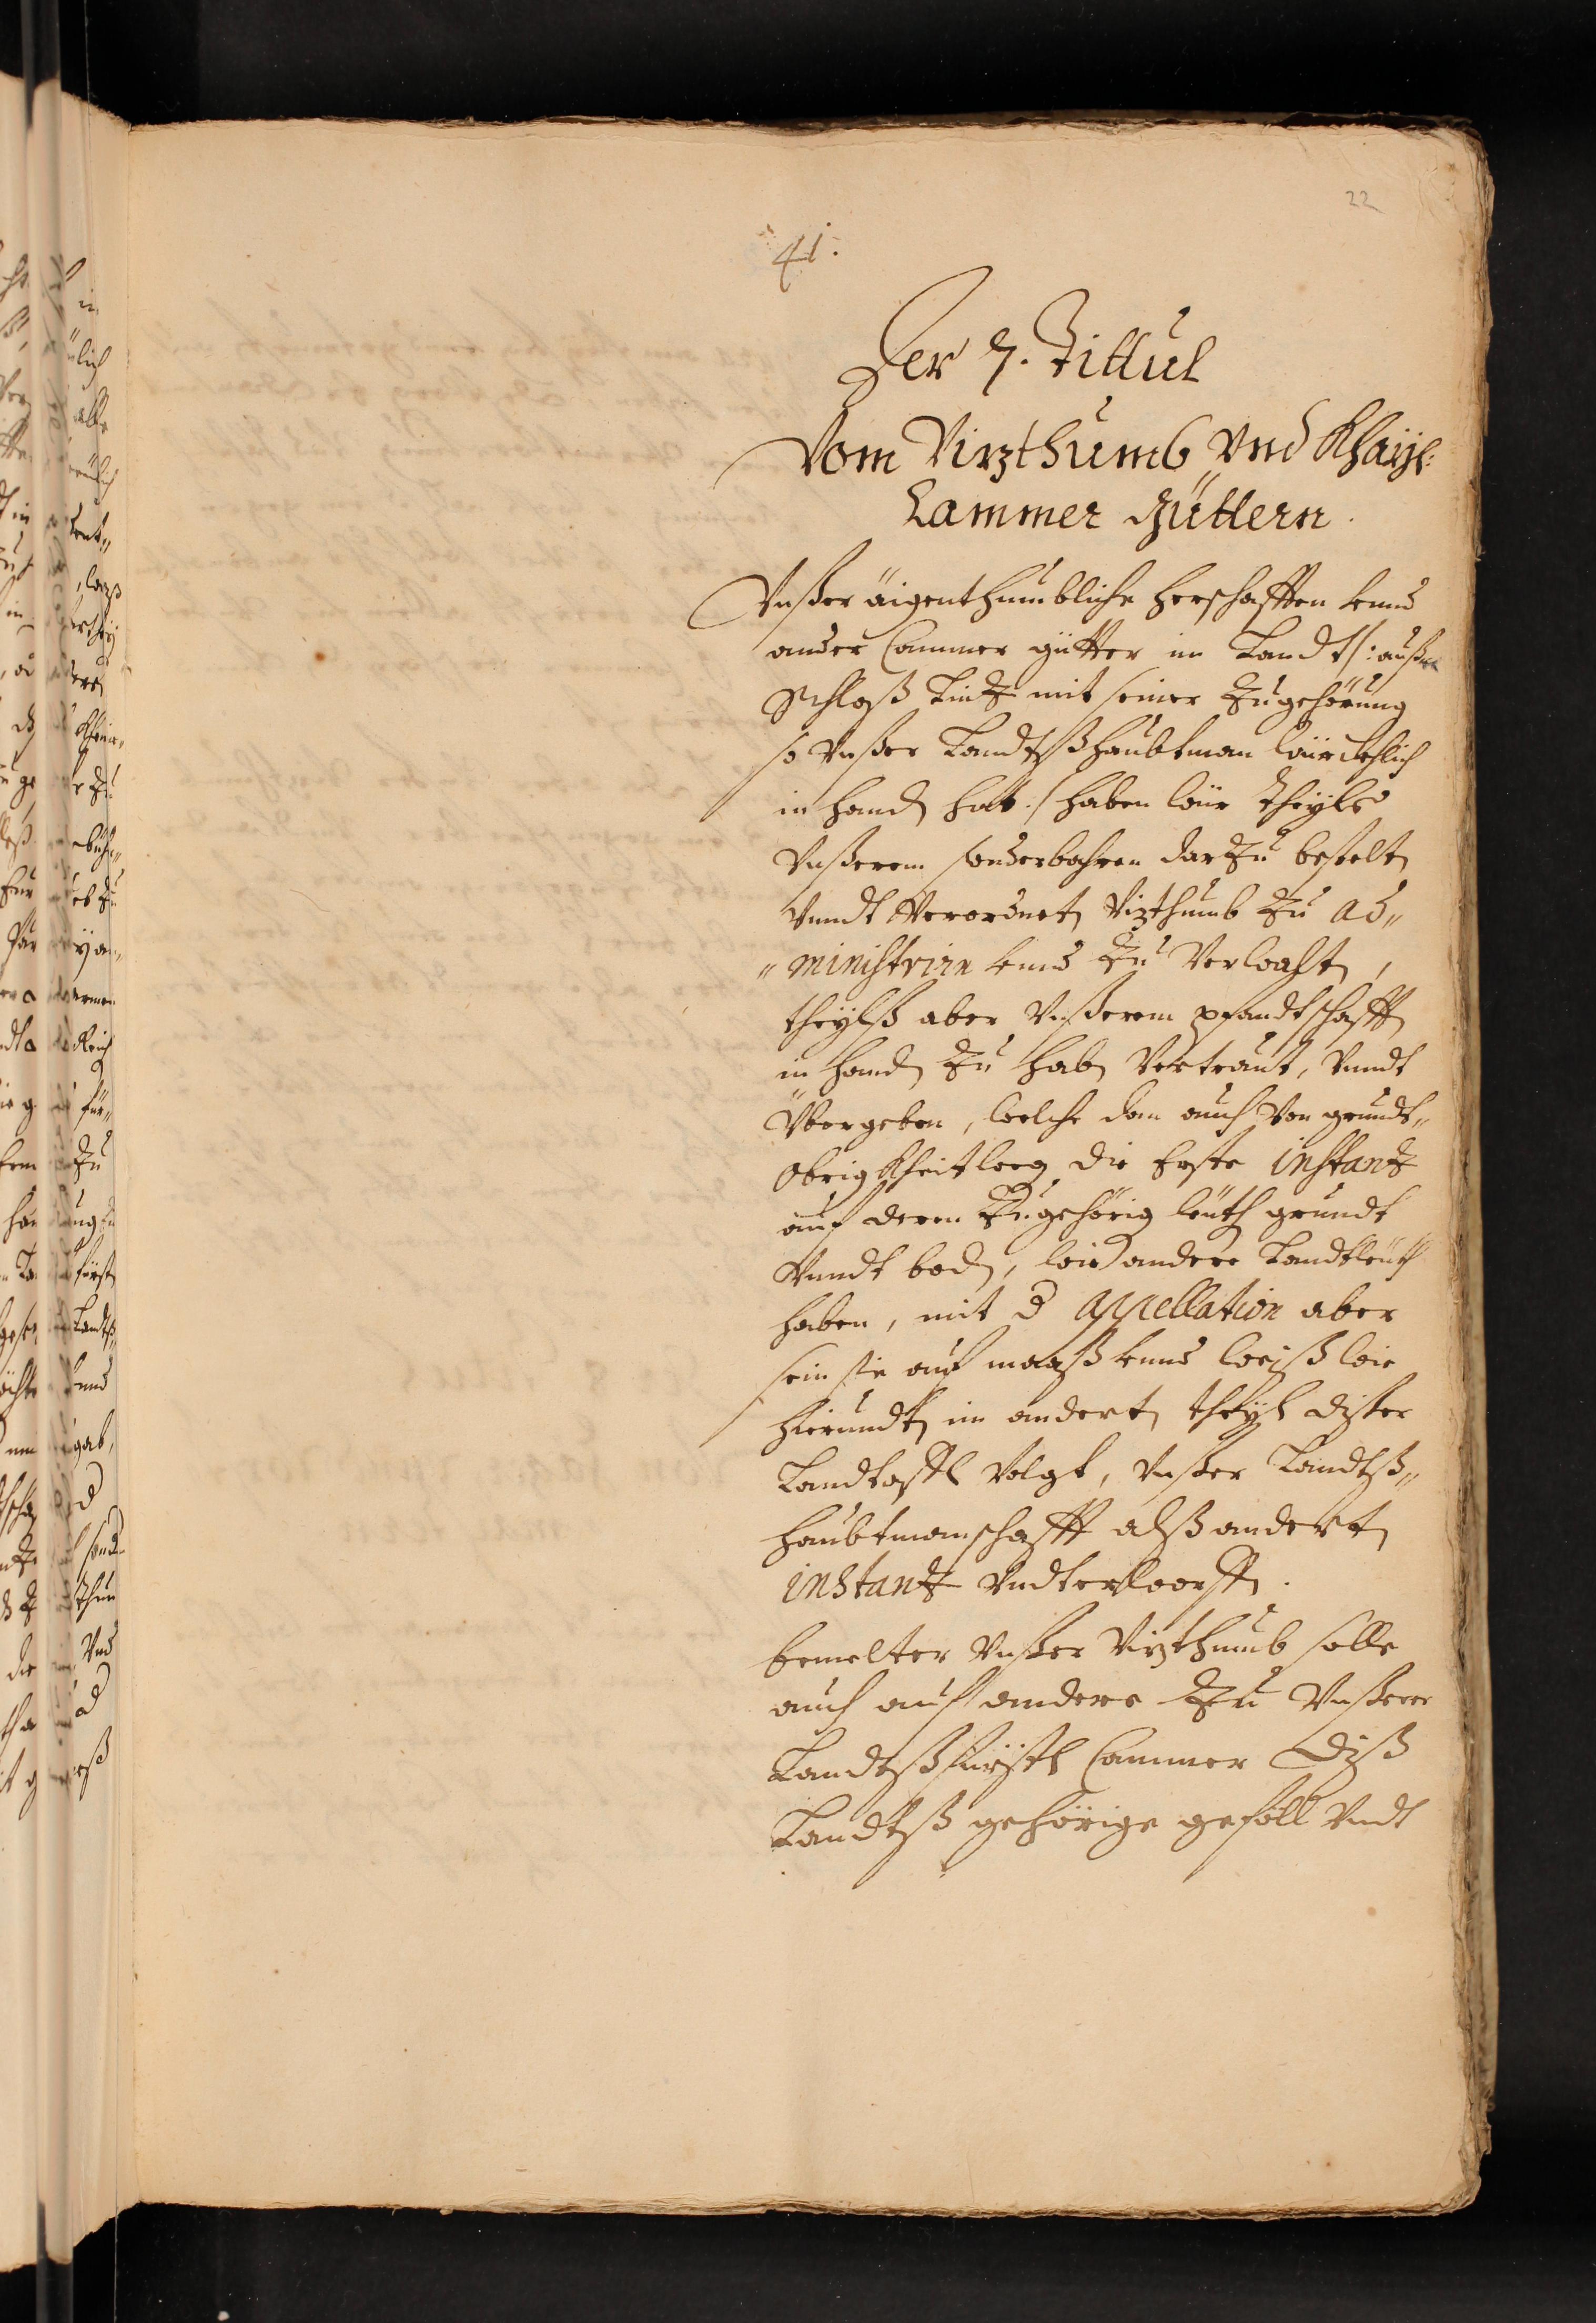 22
41.
Der 7. Tittul
Vom Vizthumb vnd Khaÿß:
Cammer güttern.
Vnßer äigenthumbliche herschafften vnnd
ander Cammer gütter im Landt /: außer
Schloß Lintz mit seiner Zugehörung
so vnßer Landtßhaubtman würckhlich
in handn hatt :/ haben wür theÿls
vnßerem sonderbahren darzu bestelten
vnndt verordneten Vizthumb zu ad„
„ministrirn vnnd zu verwalten,
theÿlß aber vnßerem pfandtschafftern
in handn zu habn vertraut, vnndt
Vbergeben, welche dan auch von grundt„
obrigkheit weeg die Erste instantz
auf deren Zugehörig leüth grundt
vnndt bodn, wie andere Landtleüth
haben, mit d appellation aber
sein sie auf maaß vnnd weiß wie
hierundtn im andertn theÿl dißer
Landtaffl volgt, vnßer Landtß„
haubtmanschafft alß andertn
instantz vndterworffn.
bemelter vnßer Vizthumb solle
auch auf andere zu vnßerer
Landtßfürstl Cammer diß
Landtß gehörige geföll vndt